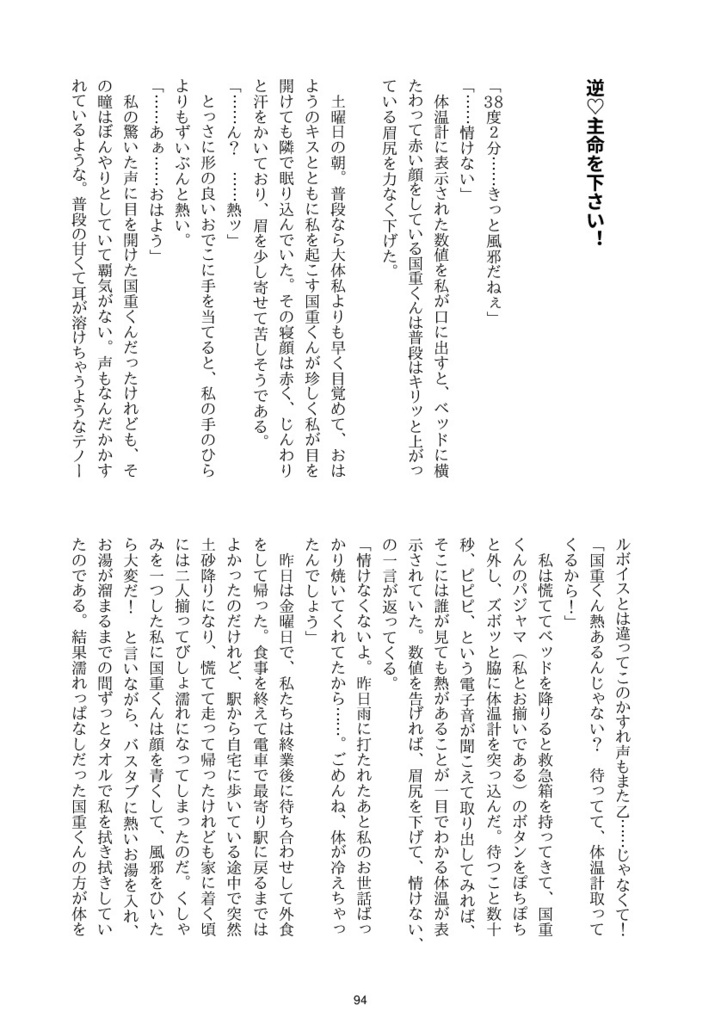 逆♡主命を下さい！
「38度２分……きっと風邪だねぇ」
「……情けない」
　体温計に表示された数値を私が口に出すと、ベッドに横
たわって赤い顔をしている国重くんは普段はキリッと上がっ
ている眉尻を力なく下げた。
　土曜日の朝。普段なら大体私よりも早く目覚めて、おは
ようのキスとともに私を起こす国重くんが珍しく私が目を
開けても隣で眠り込んでいた。その寝顔は赤く、じんわり
と汗をかいており、眉を少し寄せて苦しそうである。
「……ん？　……熱ッ」
　とっさに形の良いおでこに手を当てると、私の手のひら
よりもずいぶんと熱い。
「……あぁ……おはよう」
　私の驚いた声に目を開けた国重くんだったけれども、そ
の瞳はぼんやりとしていて覇気がない。声もなんだかかす
れているような。普段の甘くて耳が溶けちゃうようなテノー
ルボイスとは違ってこのかすれ声もまた乙……じゃなくて！
「国重くん熱あるんじゃない？　待ってて、体温計取って
くるから！」
　私は慌ててベッドを降りると救急箱を持ってきて、国重
くんのパジャマ（私とお揃いである）のボタンをぽちぽち
と外し、ズボッと脇に体温計を突っ込んだ。待つこと数十
秒、ピピピ、という電子音が聞こえて取り出してみれば、
そこには誰が見ても熱があることが一目でわかる体温が表
示されていた。数値を告げれば、眉尻を下げて、情けない、
の一言が返ってくる。
「情けなくないよ。昨日雨に打たれたあと私のお世話ばっ
かり焼いてくれてたから……。ごめんね、体が冷えちゃっ
たんでしょう」
　昨日は金曜日で、私たちは終業後に待ち合わせして外食
をして帰った。食事を終えて電車で最寄り駅に戻るまでは
よかったのだけれど、駅から自宅に歩いている途中で突然
土砂降りになり、慌てて走って帰ったけれども家に着く頃
には二人揃ってびしょ濡れになってしまったのだ。くしゃ
みを一つした私に国重くんは顔を青くして、風邪をひいた
ら大変だ！　と言いながら、バスタブに熱いお湯を入れ、
お湯が溜まるまでの間ずっとタオルで私を拭き拭きしてい
たのである。結果濡れっぱなしだった国重くんの方が体を
94